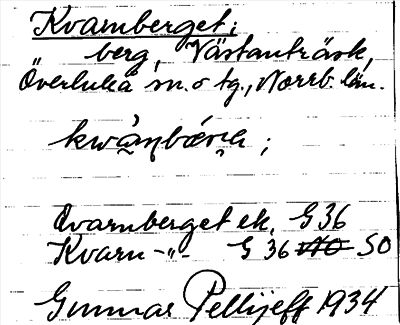 Kvarnberget;
berg, Västanträsk,
Överluleå sn. o tg., Norrb. län.
;
Qvarnberget ek. G 36
Kvarn -"- G 36 NO SO
Gunnar Pellijeff 1934